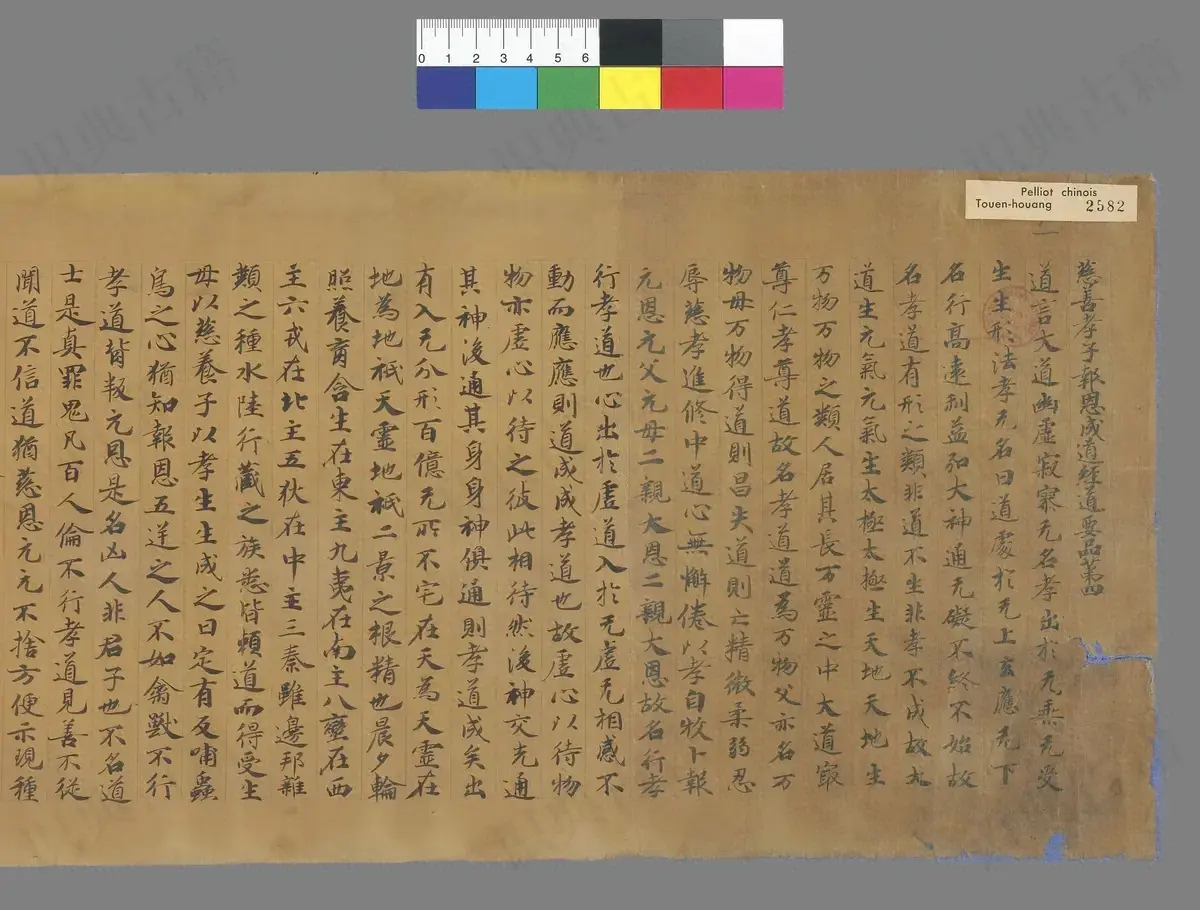 0 1 2 3 4 5 6
Pelliot chinois
Touen-houang 2582
慈善孝子報恩成道經道要品第四
道言大道幽虛寂寥无名孝出於无無无受
生生形法孝无名曰道處於无上玄應无下
名行高遠利益弘大神通无礙不終不始故
名孝道有形之類非道不生非孝不成故
道生元氣元氣生太極太極生天地天地生
万物万物之類人居其長万靈之中大道㝡
尊仁孝尊道故名孝道道為万物父亦名万
物母万物得道則昌失道則亡精微柔弱忍
辱慈孝進修中道心無懈倦以孝自牧卜報
元恩元父元母二親大恩二親大恩故名行孝
行孝道也心出於虛道入於无虛无相感不
動而應應則道成成孝道也故虛心以待物
物亦虛心以待之彼此相待然後神交炁通
其神後通其身身神俱通則孝道成矣出
有入无分形百億无所不宅在天為天靈在
地為地祇天靈地祇二景之根精也晨夕輪
照養育含生在東主九夷在南主八蠻在西
主六戎在北主五狄在中主三秦雖邊邦雜
類之種水陸行藏之族悉皆賴道而得受生
母以慈養子以孝生生成之日定有反哺梟
鳥之心猶知報恩五逆之人不如禽獸不行
孝道背叛元恩是名凶人非君子也不名道
士是真罪鬼凡百人倫不行孝道見善不從
聞道不信道猶慈恩元元不捨方便示現種